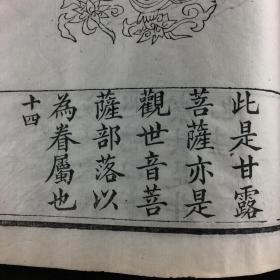 此是甘露
菩薩亦是
觀世音菩
薩部落以
為眷屬也
十四